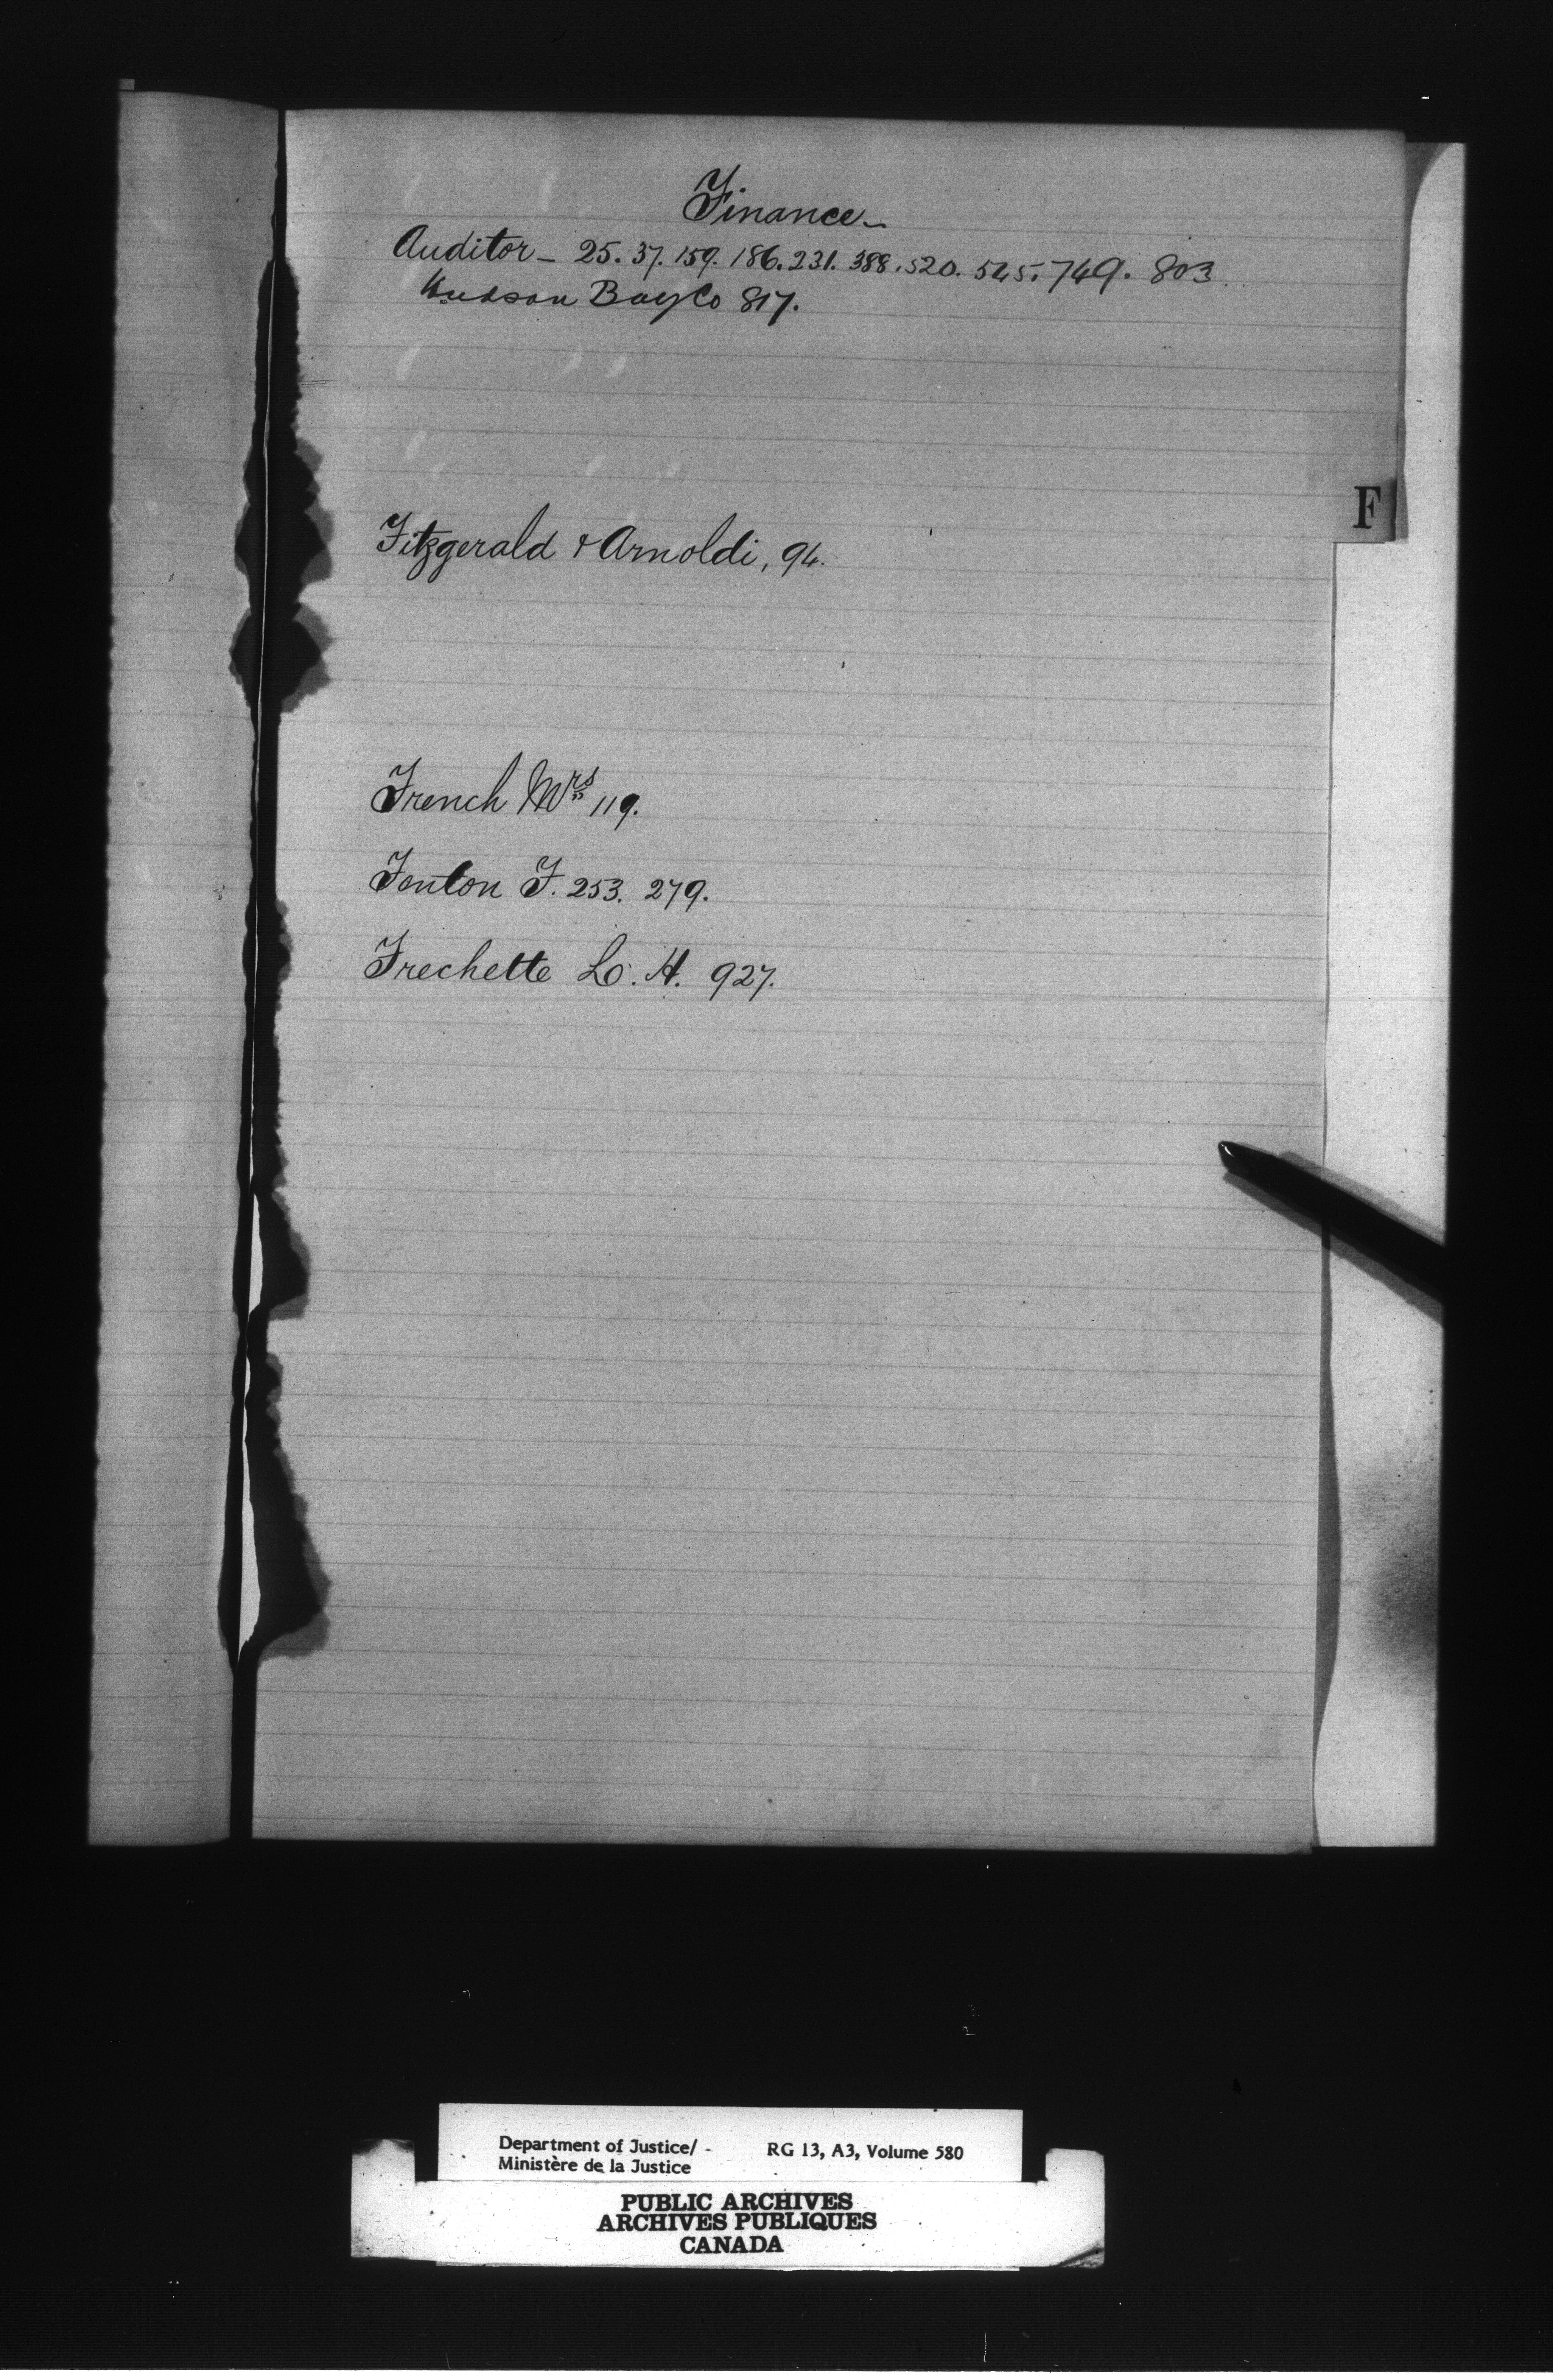 Finance_
Auditor_ 25. 37. 159. 186. 231. 388. 520. 545. 749. 803.
Hudson Bay Co 817.
F
Fitzgerald & Arnoldi, 94.
French Mrs 119.
Fenton F. 253. 279.
Frechette L. H. 927.
Department of Justice/ RG 13, A3, Volume 580
Ministère de la Justice
PUBLIC ARCHIVES
ARCHIVES PUBLIQUES
CANADA